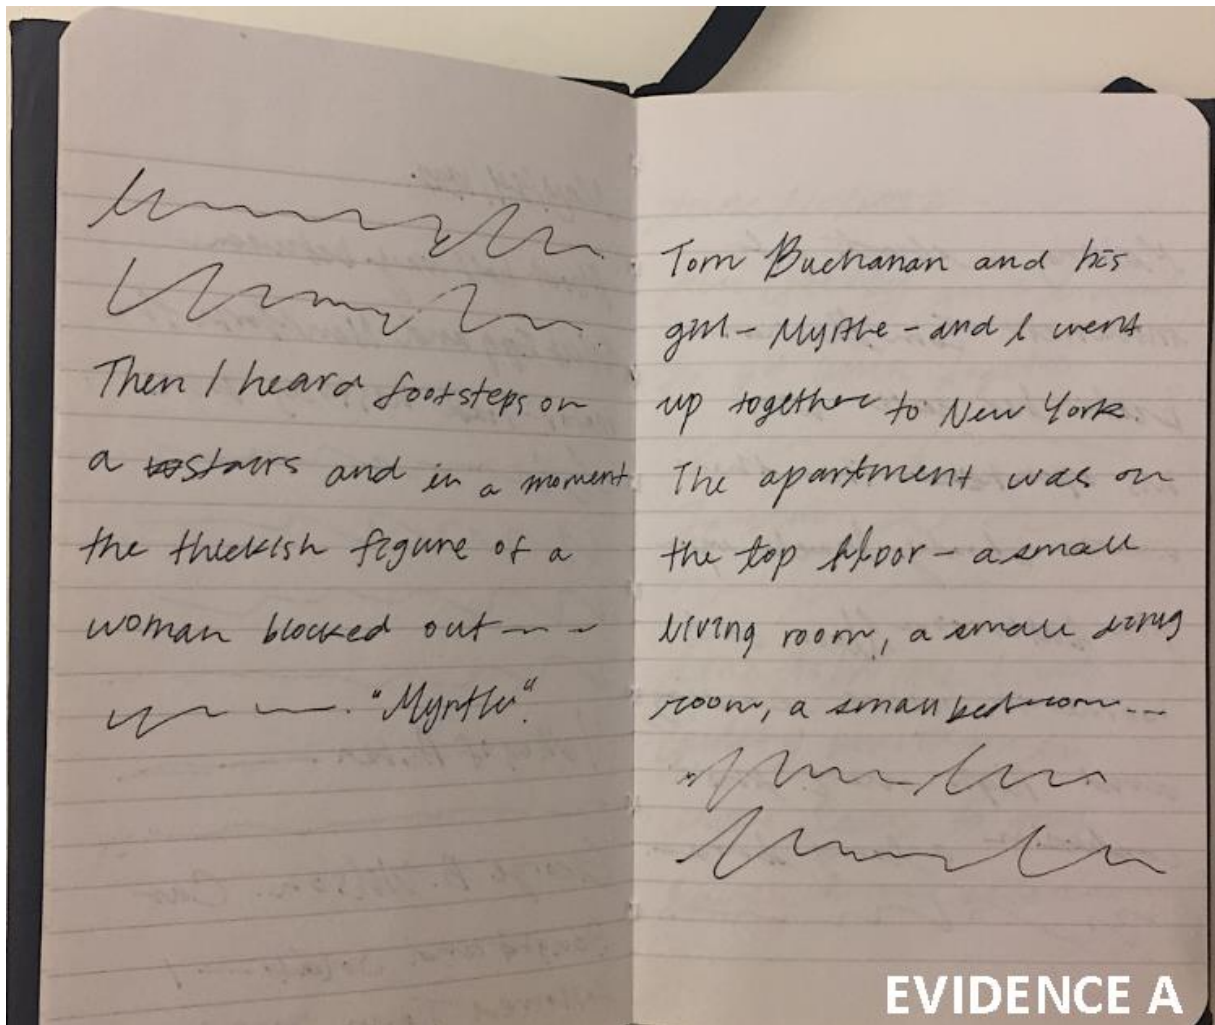 Then I heard footsteps on
a stairs and in a moment
the thickish figure of a
woman blocked out
"Myrtle".
Tom Buchanan and his
girl - Myrtle - and I went
up together to New York.
The apartment was on
the top floor - a small
living room, a small dining
room, a small bedroom...
EVIDENCE A